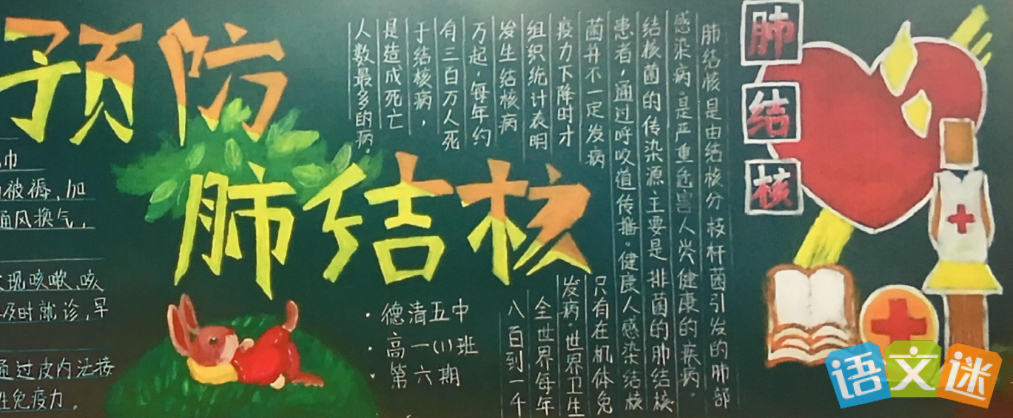 预防
肺结核
肺结核
肺结核是由结核分枝杆菌引发的肺部
感染病是严重危害人类健康的疾病。
结核菌的传染源主要是排菌的肺结核
患者，通过呼吸道传播。健康人感染结核
菌并不一定发病
只有在机体免
疫力下降时才
发病。世界卫生
组织统计表明
全世界每年
发生结核病
八百到一千
万起，每年约
有三百万人死
于结核病，
是造成死亡
人数最多的病.
·德清五中
·高一(1)班
·第六期
巾
被褥,加
通风换气,
现咳嗽,咳
及时就诊,早
通过皮内注接
免疫力.
语文迷